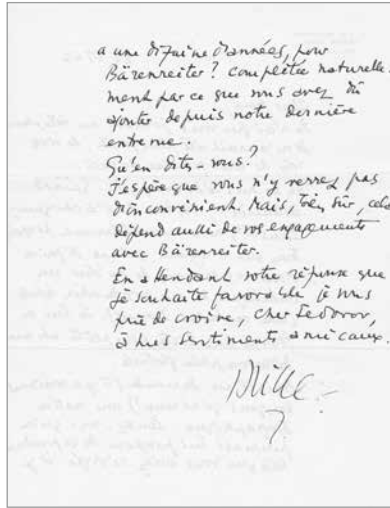 a une dizaine d'années, pour
Bärenreiter? complétée naturelle-
ment par ce que vous avez dû
ajouter depuis notre dernière
entrevue.
Qu'en dites-vous?
J'espère que vous n'y verrez pas
d'inconvénient. Mais, bien sûr, cela
dépend aussi de vos engagements
avec Bärenreiter.
En attendant votre réponse que
je souhaite favorable je vous
prie de croire, cher Fedorov,
à mes sentiments amicaux.